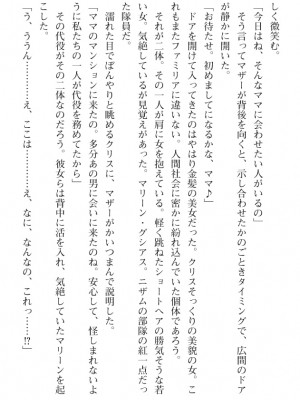 しく微笑む。
「今日はね、そんなママに会わせたい人がいるの」
そう言ってマザーが背後を向くと、示し合わせたかのごときタイミングで、広間のドア
が静かに開いた。
「お待たせ。初めましてになるかな、ママ♪」
ドアを開けて入ってきたのはやはり金髪の美女だった。クリスそっくりの美貌の女。こ
れもまたファミリアに違いない。人間社会に密かに紛れ込んでいた個体であろう。
それが二体。その一人が肩に女を抱えている。軽く跳ねたショートヘアの勝気そうな若
い女。気絶しているが見覚えがあった。マリーン・グシアス。ニザムの部隊の紅一点だっ
た隊員だ。
濡れた目でぼんやりと眺めるクリスに、マザーがかいつまんで説明した。
「ママのマンションに来たの。多分あの男に会いに来たのね。安心して、怪しまれないよ
うに私たちの一人が代役を務めてたから」
その代役がその二体なのだろう。彼女らは背中に活を入れ、気絶していたマリーンを起
こした。
「う、ううん………え、ここは………え、なに、なんなの、これっ……!?」